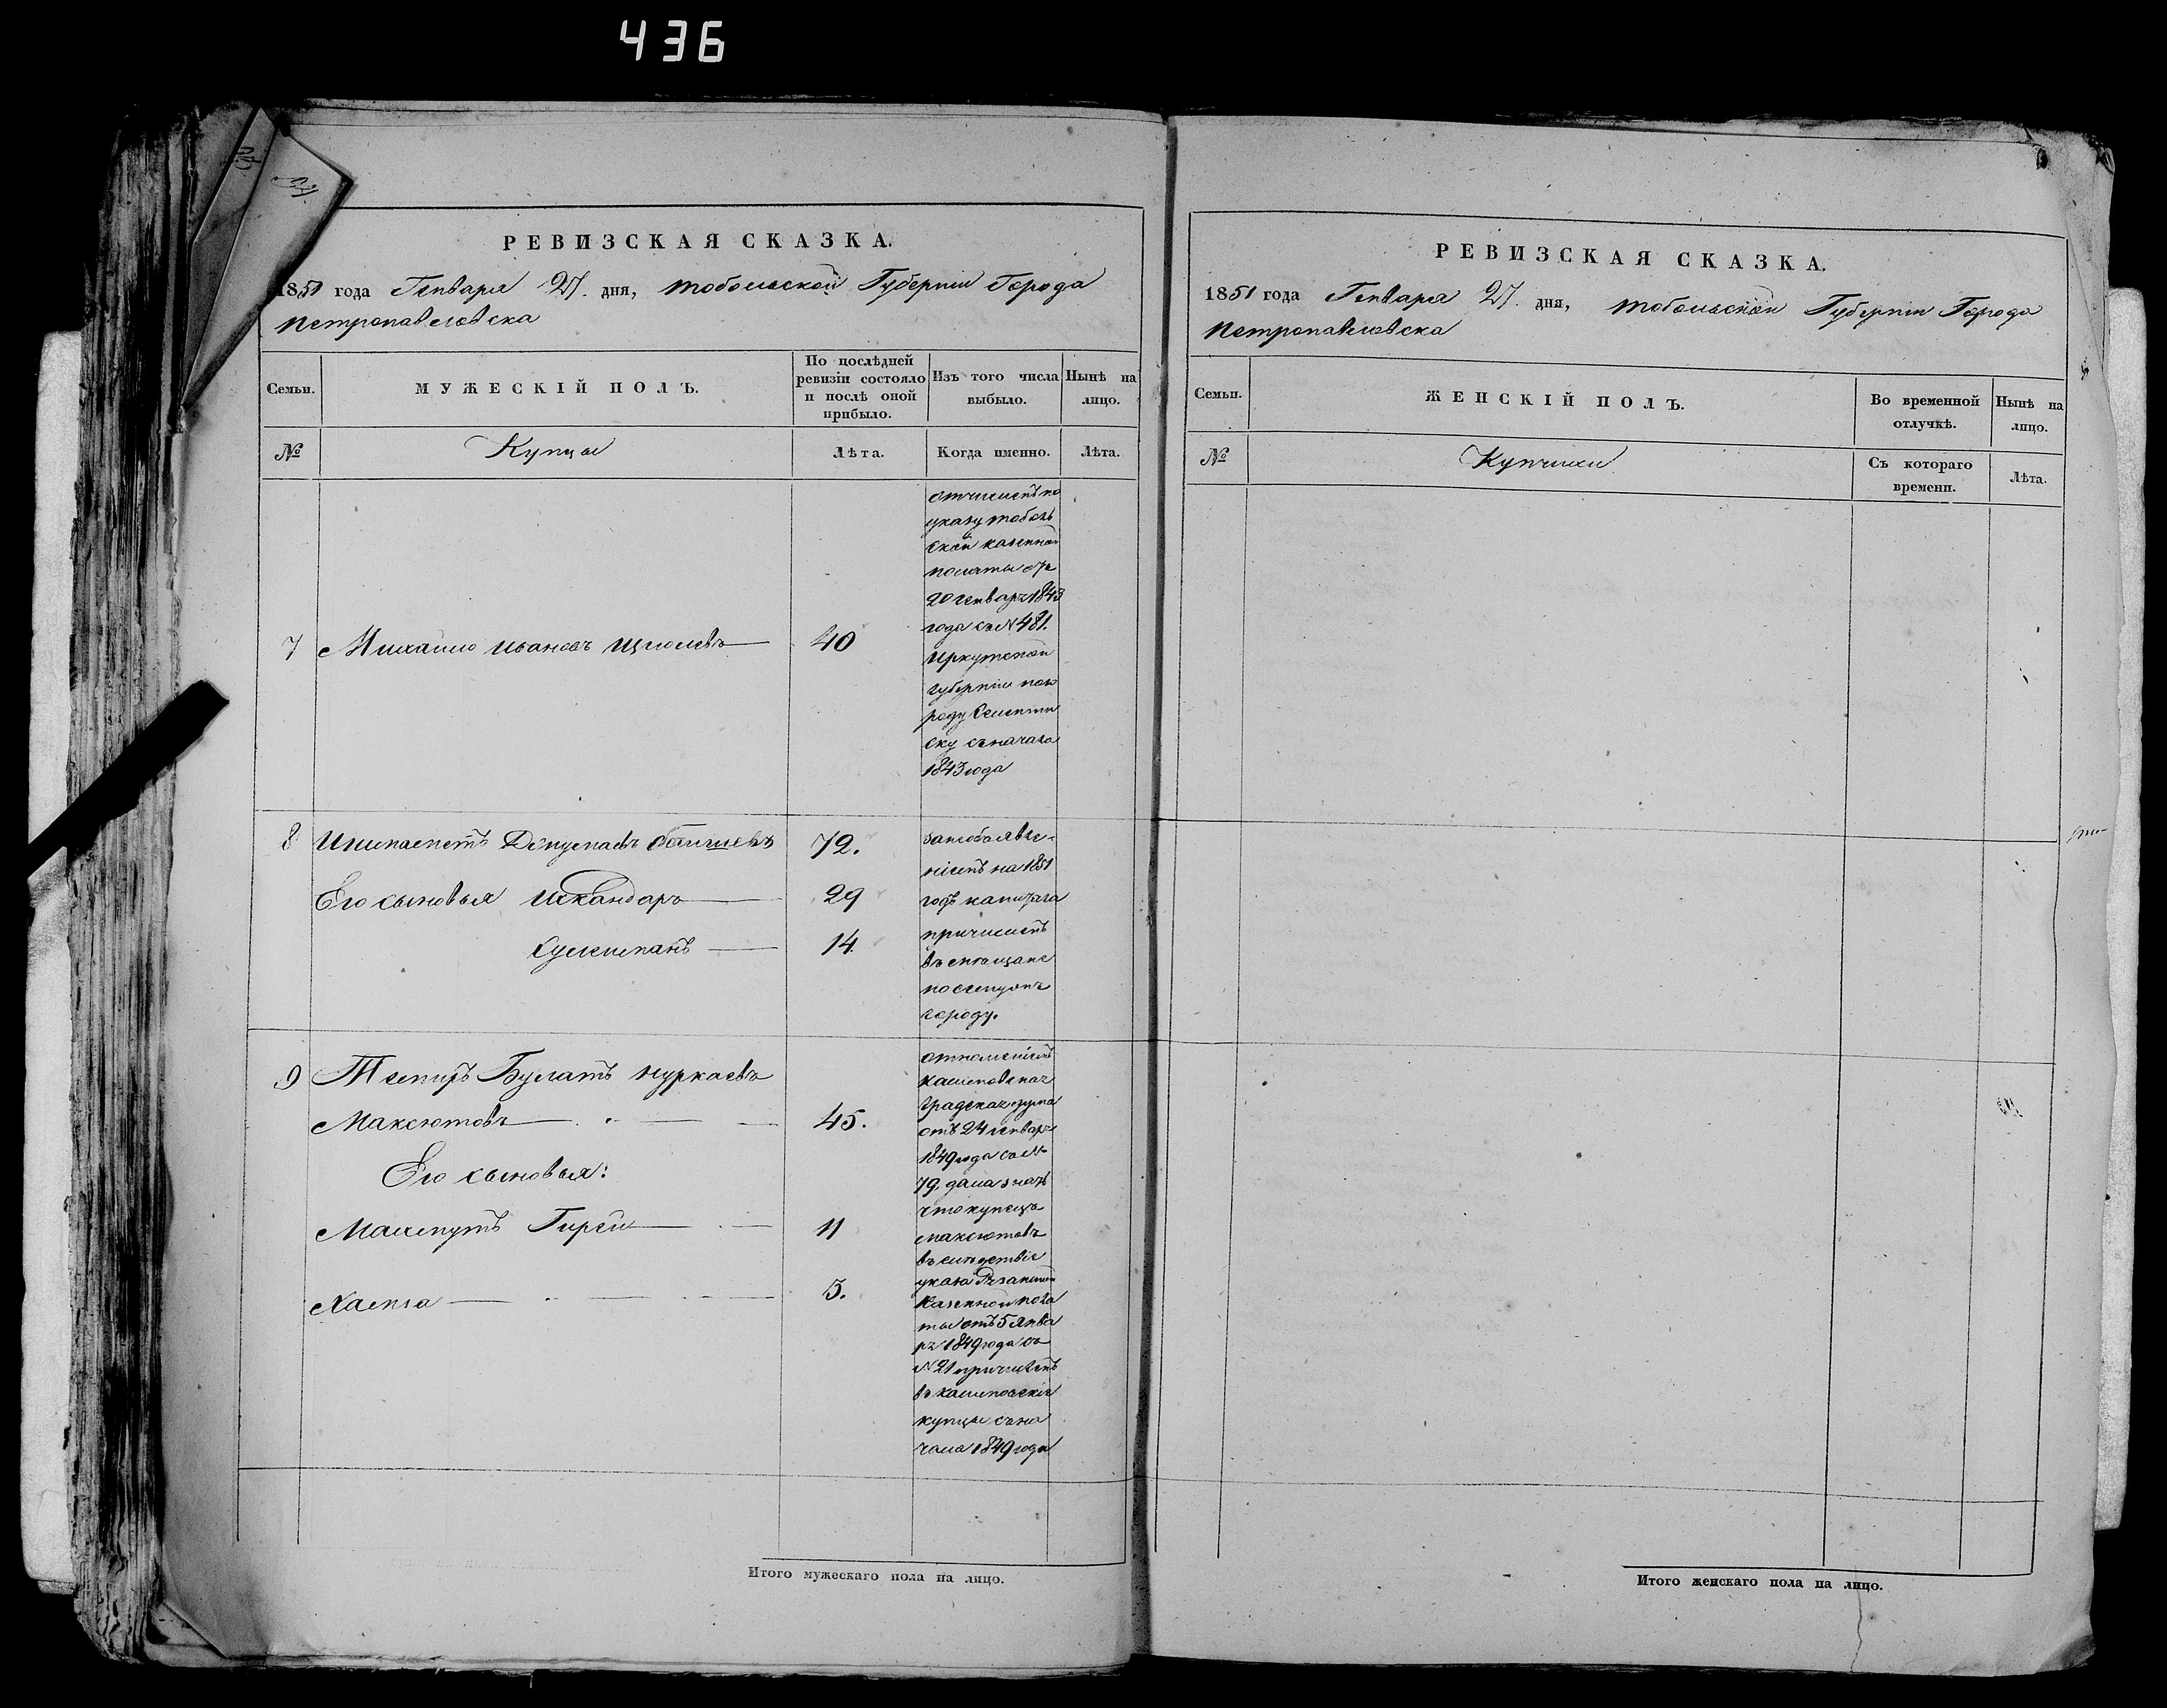 436
РЕВИЗСКАЯ СКАЗКА.
1851 года Генваря 27. дня, Тобольской Губернiи Города
Петропавловска
Семьи.
МУЖЕСКIЙ ПОЛЪ.
По послѣдней ревизiи состояло и послѣ оной прибыло.
Изъ того числа выбыло.
Нынѣ на лицо.
№
Купцы
Лѣта.
Когда именно.
Лѣта.
7 Михайло Ивановъ 40
отчисленъ по
указу тоболь
ской казенной
полаты отъ
20 генваря 1843
года съ № 481.
Иркутской
губернiи по го
роду Селенгин
ску съ начала
1843 года
8 72.
Его сыновья Искандаръ 29
Сулейманъ 14.
за необъявле-
нiемъ на 1851
годъ капитала
причисленъ
въ мѣщане
по сему же
городу.
9 Темиръ Булатъ Нуркаевъ
Максютовъ 45.
Его сыновья:
Махмутъ Гирей 11
Хамза 3.
отношенiемъ
касимовская
градская дума
отъ 24 генваря
1849 года за №
79, дала знать
что купецъ
максютовъ
въ слѣдствiе
указа Рязанской
Казенной пола
ты отъ 5 Янва
ря 1849 года за
№ 21 причисленъ
въ касимовскiе
купцы съ на
чала 1849 года
Итого мужескаго пола на лицо.
РЕВИЗСКАЯ СКАЗКА.
1851 года Генваря 27. дня, Тобольской Губернiи Города
Петропавловска
Семьи.
ЖЕНСКIЙ ПОЛЪ.
Во временной отлучкѣ.
Нынѣ на лицо.
№
Купчихи
Съ котораго времени.
Лѣта.
Итого женскаго пола на лицо.